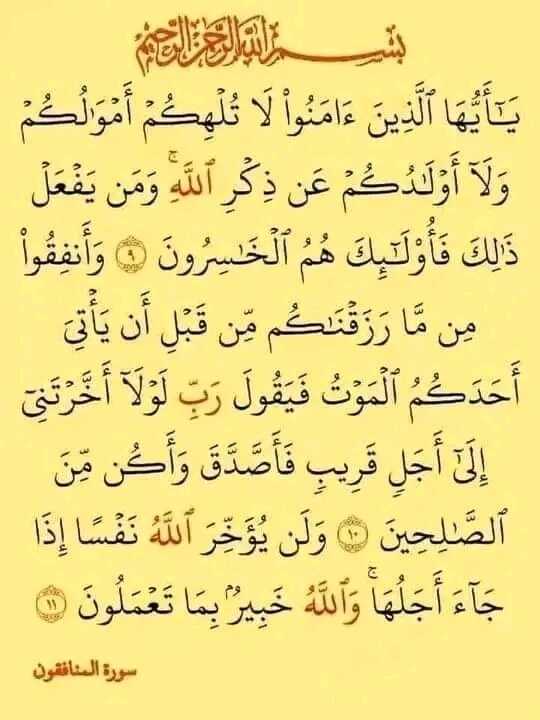 بِسْمِ اللَّهِ الرَّحْمَٰنِ الرَّحِيمِ
يَـٰٓأَيُّهَا ٱلَّذِينَ ءَامَنُوا۟ لَا تُلْهِكُمْ أَمْوَٰلُكُمْ
وَلَآ أَوْلَـٰدُكُمْ عَن ذِكْرِ ٱللَّهِ ۚ وَمَن يَفْعَلْ
ذَٰلِكَ فَأُو۟لَـٰٓئِكَ هُمُ ٱلْخَـٰسِرُونَ ٩ وَأَنفِقُوا۟
مِن مَّا رَزَقْنَـٰكُم مِّن قَبْلِ أَن يَأْتِىَ
أَحَدَكُمُ ٱلْمَوْتُ فَيَقُولَ رَبِّ لَوْلَآ أَخَّرْتَنِىٓ
إِلَىٰٓ أَجَلٍ قَرِيبٍ فَأَصَّدَّقَ وَأَكُن مِّنَ
ٱلصَّـٰلِحِينَ ١٠ وَلَن يُؤَخِّرَ ٱللَّهُ نَفْسًا إِذَا
جَآءَ أَجَلُهَا ۚ وَٱللَّهُ خَبِيرٌۢ بِمَا تَعْمَلُونَ ١١
سورة المنافقون